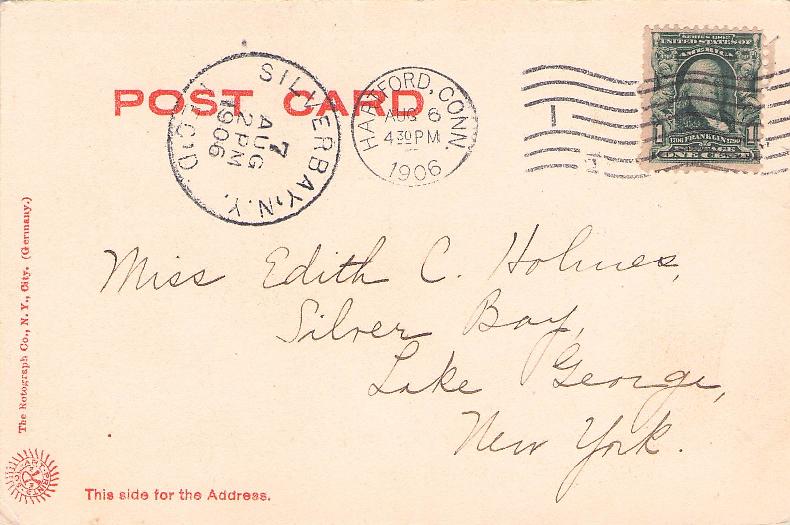 POST CARD
SILVERBAY, N.Y.
7
AUG
2 PM
1906
REC'D
HARTFORD, CONN.
AUG 6
4 30 PM
1906
SERIES 1902
UNITED STATES OF
AMERICA
1 FRANKLIN 1
ONE CENT
Miss Edith C. Holmes,
Silver Bay,
Lake George,
New York.
The Rotograph Co., N. Y., City. (Germany.)
This side for the Address.